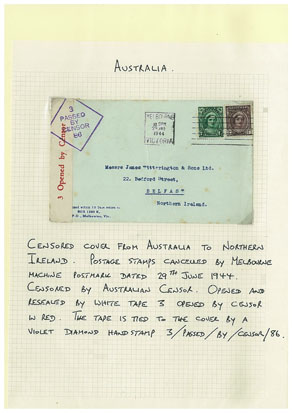 AUSTRALIA.
3
PASSED
BY
CENSOR
86
3 Opened by Censor
MELBOURNE
1944
VICTORIA
Messrs James Tittrington & Sons Ltd.
22, Bedford Street,
BELFAST
Northern Ireland.
CENSORED COVER FROM AUSTRALIA TO NORTHERN
IRELAND. POSTAGE STAMPS CANCELLED BY MELBOURNE
MACHINE POSTMARK DATED 29TH JUNE 1944.
CENSORED BY AUSTRALIAN CENSOR. OPENED AND
RESEALED BY WHITE TAPE 3 OPENED BY CENSOR
IN RED. THE TAPE IS TIED TO THE COVER BY A
VIOLET DIAMOND HANDSTAMP 3/PASSED/BY/CENSOR/86.